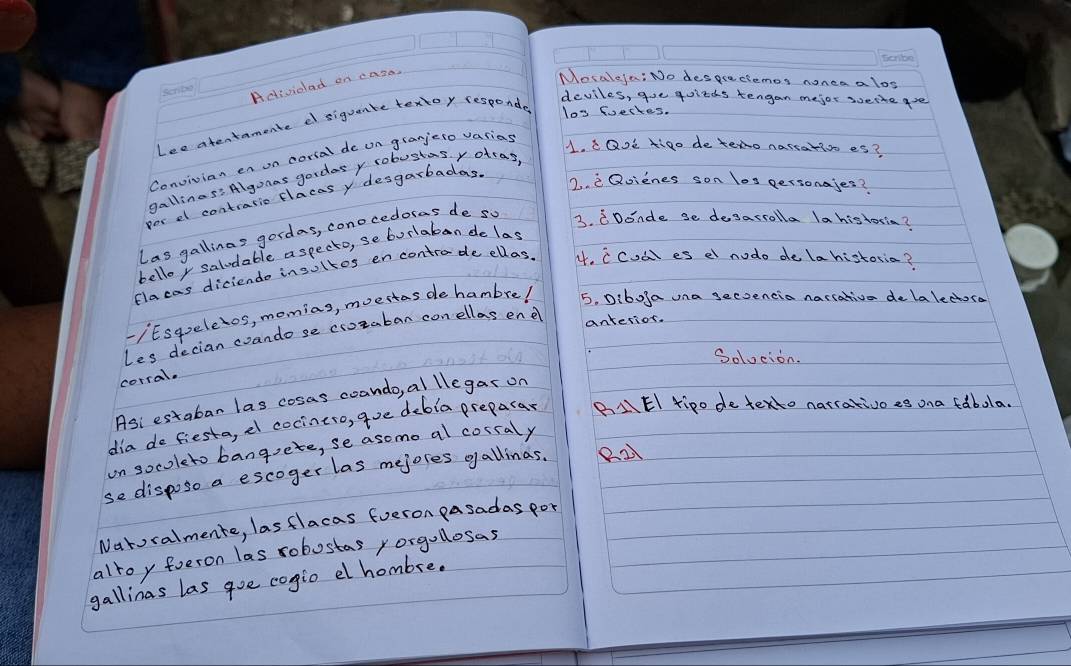 Scribe
Actividad en casa.
Lee atentamente el siguente texto y responde
Convivian en un corral de un granjero varias
gallinas: Algunas gordas y robustas y otras,
por el contrario flacas y desgarbadas.
Las gallinas gordas, conocedoras de su
bello y saludable aspecto, se burlaban de las
flacas diciendo insultos en contra de ellas.
-¡Esqueletos, momias, muertas de hambre!
Les decian cuando se cruzaban con ellas en el
corral.
Asi estaban las cosas cuando, al llegar un
día de fiesta, el cocinero, que debía preparar
un suculeto banquete, se asomo al corral y
se dispuso a escoger las mejores gallinas.
Naturalmente, las flacas fueron pasadas por
alto y fueron las robustas y orgullosas
gallinas las que cogio el hombre.
Scribe
Moraleja: No despreciemos nunca a los
deviles, que quizás tengan mejor suerte que
los fuertes.
1. ¿Qué tipo de texto narrativo es?
2. ¿Quiénes son los personajes?
3. ¿Dónde se desarrolla la historia?
4. ¿Cuál es el nudo de la historia?
5. Dibuja una secuencia narrativa de la lectura
anterior.
Solución.
R1\ El tipo de texto narrativo es una fábula.
R2\